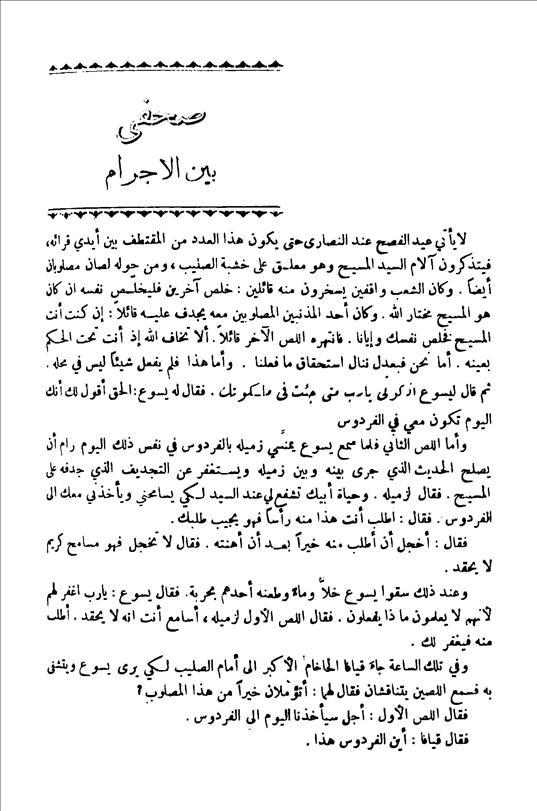 صحفي
بين الاجرام
لا يأتي عيد الفصح عند النصارى حتى يكون هذا العدد من المقتطف بين أيدي قرائه،
فيتذكرون آلام السيد المسيح وهو معلق على خشبة الصليب، ومن حوله لصان مصلوبان
أيضاً . وكان الشعب واقفين يسخرون منه قائلين : خلص آخرين فليخلص نفسه ان كان
هو المسيح مختار الله . وكان أحد المذنبين المصلوبين معه يجدف عليه قائلاً : إن كنت أنت
المسيح فخلص نفسك وإيانا . فانتهره اللص الآخر قائلاً . ألا تخاف الله إذ أنت تحت الحكم
بعينه . أما نحن فبعدل ننال استحقاق ما فعلنا . وأما هذا فلم يفعل شيئاً ليس في محله .
ثم قال ليسوع اذكرني يارب متى جئت في ملكوتك . فقال له يسوع : الحق أقول لك أنك
اليوم تكون معي في الفردوس
وأما اللص الثاني فلما سمع يسوع يمنّي زميله بالفردوس في نفس ذلك اليوم رام أن
يصلح الحديث الذي جرى بينه وبين زميله ويستغفر عن التجديف الذي جدفه على
المسيح . فقال لزميله . وحياة أبيك تشفع لي عند السيد لكي يسامحني ويأخذني معك الى
الفردوس . فقال : اطلب أنت هذا منه رأساً فهو يجيب طلبك .
فقال : أخجل أن أطلب منه خيراً بعد أن أهنته . فقال لا تخجل فهو مسامح كريم
لا يحقد .
وعند ذلك سقوا يسوع خلاً وماء وطعنه أحدهم بحربة . فقال يسوع : يارب اغفر لهم
لأنهم لا يعلمون ما ذا يفعلون . فقال اللص الأول لزميله، أسامع أنت انه لا يحقد . أطلب
منه فيغفر لك .
وفي تلك الساعة جاء قيافا الحاخام الأكبر الى أمام الصليب لكي يرى يسوع ويتشفى
به فسمع اللصين يتناقشان فقال لهما : أتؤملان خيراً من هذا المصلوب ؟
فقال اللص الأول : أجل سيأخذنا اليوم الى الفردوس .
فقال قيافا : أين الفردوس هذا .